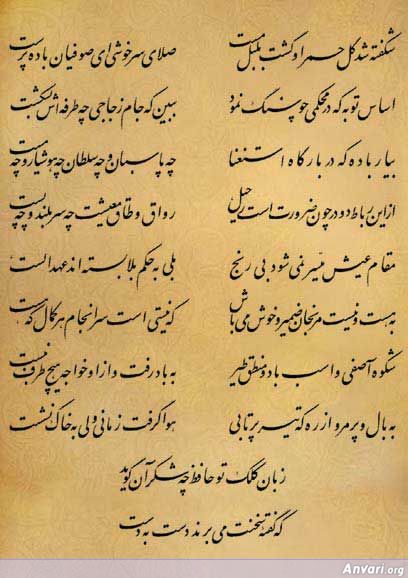 شکفته شد گل حمرا و گشت بلبل مست صلای سرخوشی ای صوفیان باده پرست
اساس توبه که در محکمی چو سنگ نمود ببین که جام زجاجی چه طرفه اش بشکست
بیار باده که در بارگاه استغنا چه پاسبان و چه سلطان چه هوشیار و چه مست
از این رباط دودر چون ضرورت است رحیل رواق و طاق معیشت چه سربلند و چه پست
مقام عیش میسر نمی شود بی رنج بلی به حکم بلا بسته اند عهد الست
به هست و نیست مرنجان ضمیر و خوش می باش که نیستی است سرانجام هر کمال که هست
شکوه آصفی و اسب باد و منطق طیر به باد رفت و از او خواجه هیچ طرف نبست
به بال و پر مرو از ره که تیر پرتابی هوا گرفت زمانی ولی به خاک نشست
زبان کلک تو حافظ چه شکر آن گوید
که گفته سخنت می برند دست به دست
Anvari.org